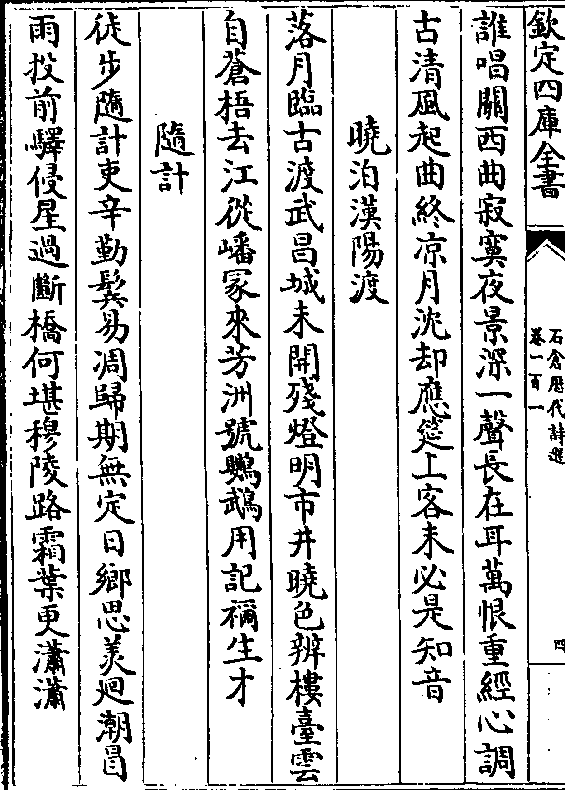 欽定四庫全書
石倉歷代詩選
卷一百一
四
誰唱關西曲寂寞夜景深一聲長在耳萬恨重經心調
古清風起曲終凉月沈却應筵上客未必是知音
曉泊漢陽渡
落月臨古渡武昌城未開殘燈明市井曉色辨樓臺雲
自蒼梧去江從嶓冢來芳洲號鸚鵡用記禰生才
隨計
徒步隨計吏辛勤鬢易凋歸期無定日鄉思羡廻潮冒
雨投前驛侵星過斷橋何堪穆陵路霜葉更瀟瀟